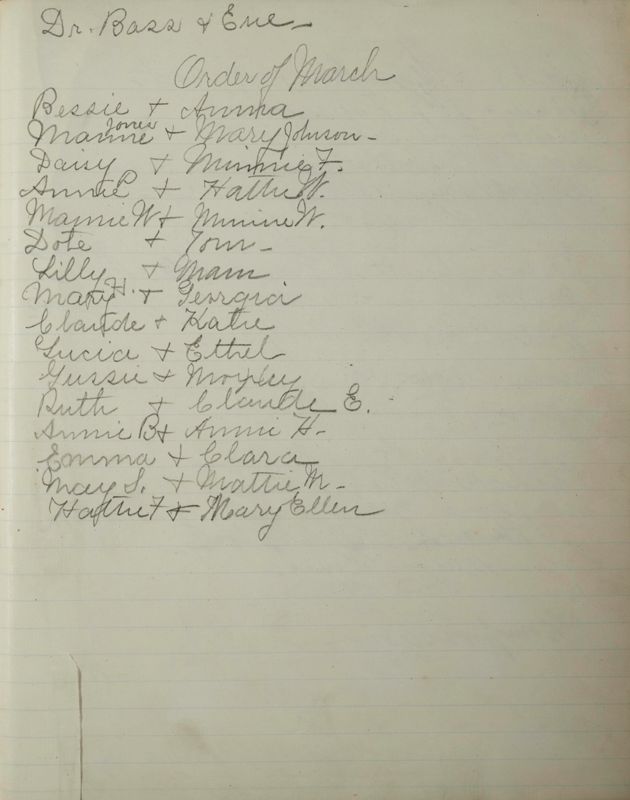 Dr. Bass & Eve -
Order of March
Bessie + Anna
Mamie Jones + Mary Johnson -
Daisy + Minnie F.
Annie P + Hattie W.
Mamie W + Minnie W.
Dote + Tom -
Lilly + Mam
Mary H. + Georgia
Claude + Katie
Lucia + Ethel
Gussie + Morpley
Ruth + Claude E.
Annie B + Annie H -
Emma + Clara
May S. + Mattie M -
Hattie F + Mary Ellen